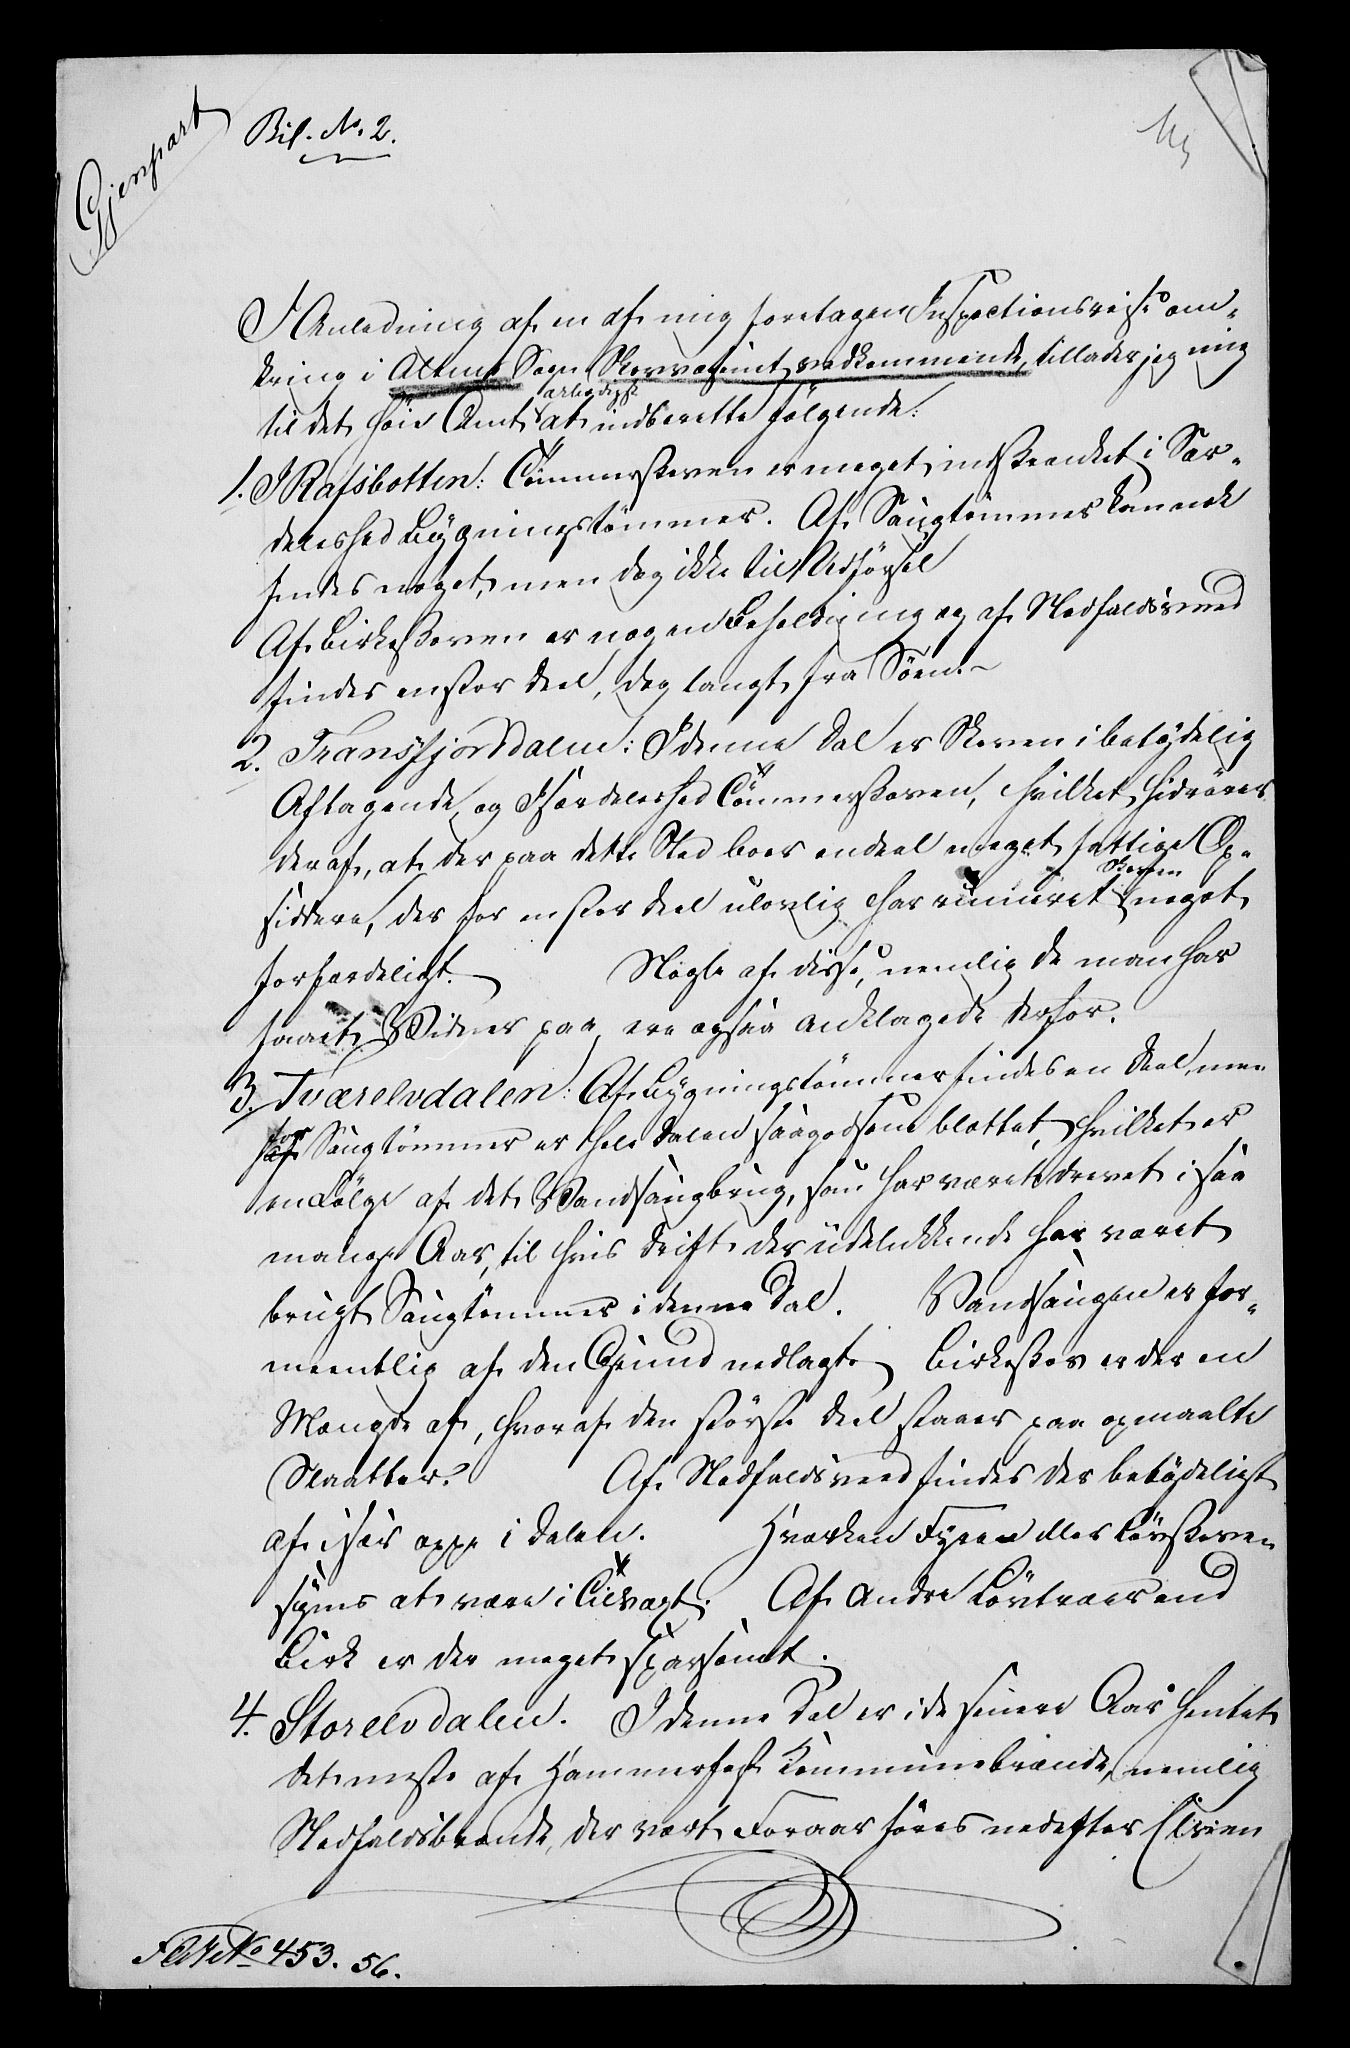 Gjenpart
Bil. No. 2.
I Anledning af en af mig foretagen Inspectionsreise om-
kring i Altens Sogn Skovvæsenet vedkommende, tillader jeg mig
til det høie Amt ærbødigst at indberette følgende:
1. I Rafsbotten: Tømmerskoven er meget indskrænket i Sær-
deleshed Bygningstømmer. Af Saugtømmer kan nok
findes noget, men dog ikke til Udførsel
Af Birkeskoven er nogen Beholdning og af Nedfaldsveed
findes en stor Deel, dog langt fra Søen.
2. Transfjorddalen: I denne Dal er Skoven i betydelig
Aftagende, og Særdeleshed Tømmerskoven, hvilket hidrører
deraf, at der paa dette Sted boer endeel meget fattige Op-
siddere, der for en stor Deel ulovlig har ruineret Skoven noget
forfærdeligt. Nogle af disse, nemlig de man har
faaet Vidner paa ere ogsaa anklagede derfor.
3. Tværelvdalen: Af Bygningstømmer findes en Deel, men
for Saugtømmer er hele Dalen saagodtsom blottet, hvilket er
en Følge af det Vandsaugbrug, som har været drevet i saa
mange Aar, til hvis Drift der udelukkende har været
brugt Saugtømmer i denne Dal. Vandsaugen er for-
meentlig af den Grund nedlagt. Birkeskov er der en
Mængde af, hvoraf den største Deel staaer paa opmaalte
Slaatter. Af Nedfaldsveed findes der betydeligt
af især oppe i Dalen. Hverken Fyrre eller Løvskoven
synes at være i Tilvext. Af andre Løvtræer end
Birk er der meget sparsomt.
4. Storelvdalen. I denne Dal er i de senere Aar hentet
det meste af Hammerfest Kommunebrænde, nemlig
Nedfaldsbrænde, der vært Foraar føres nedefter Elven
No 453. 56.